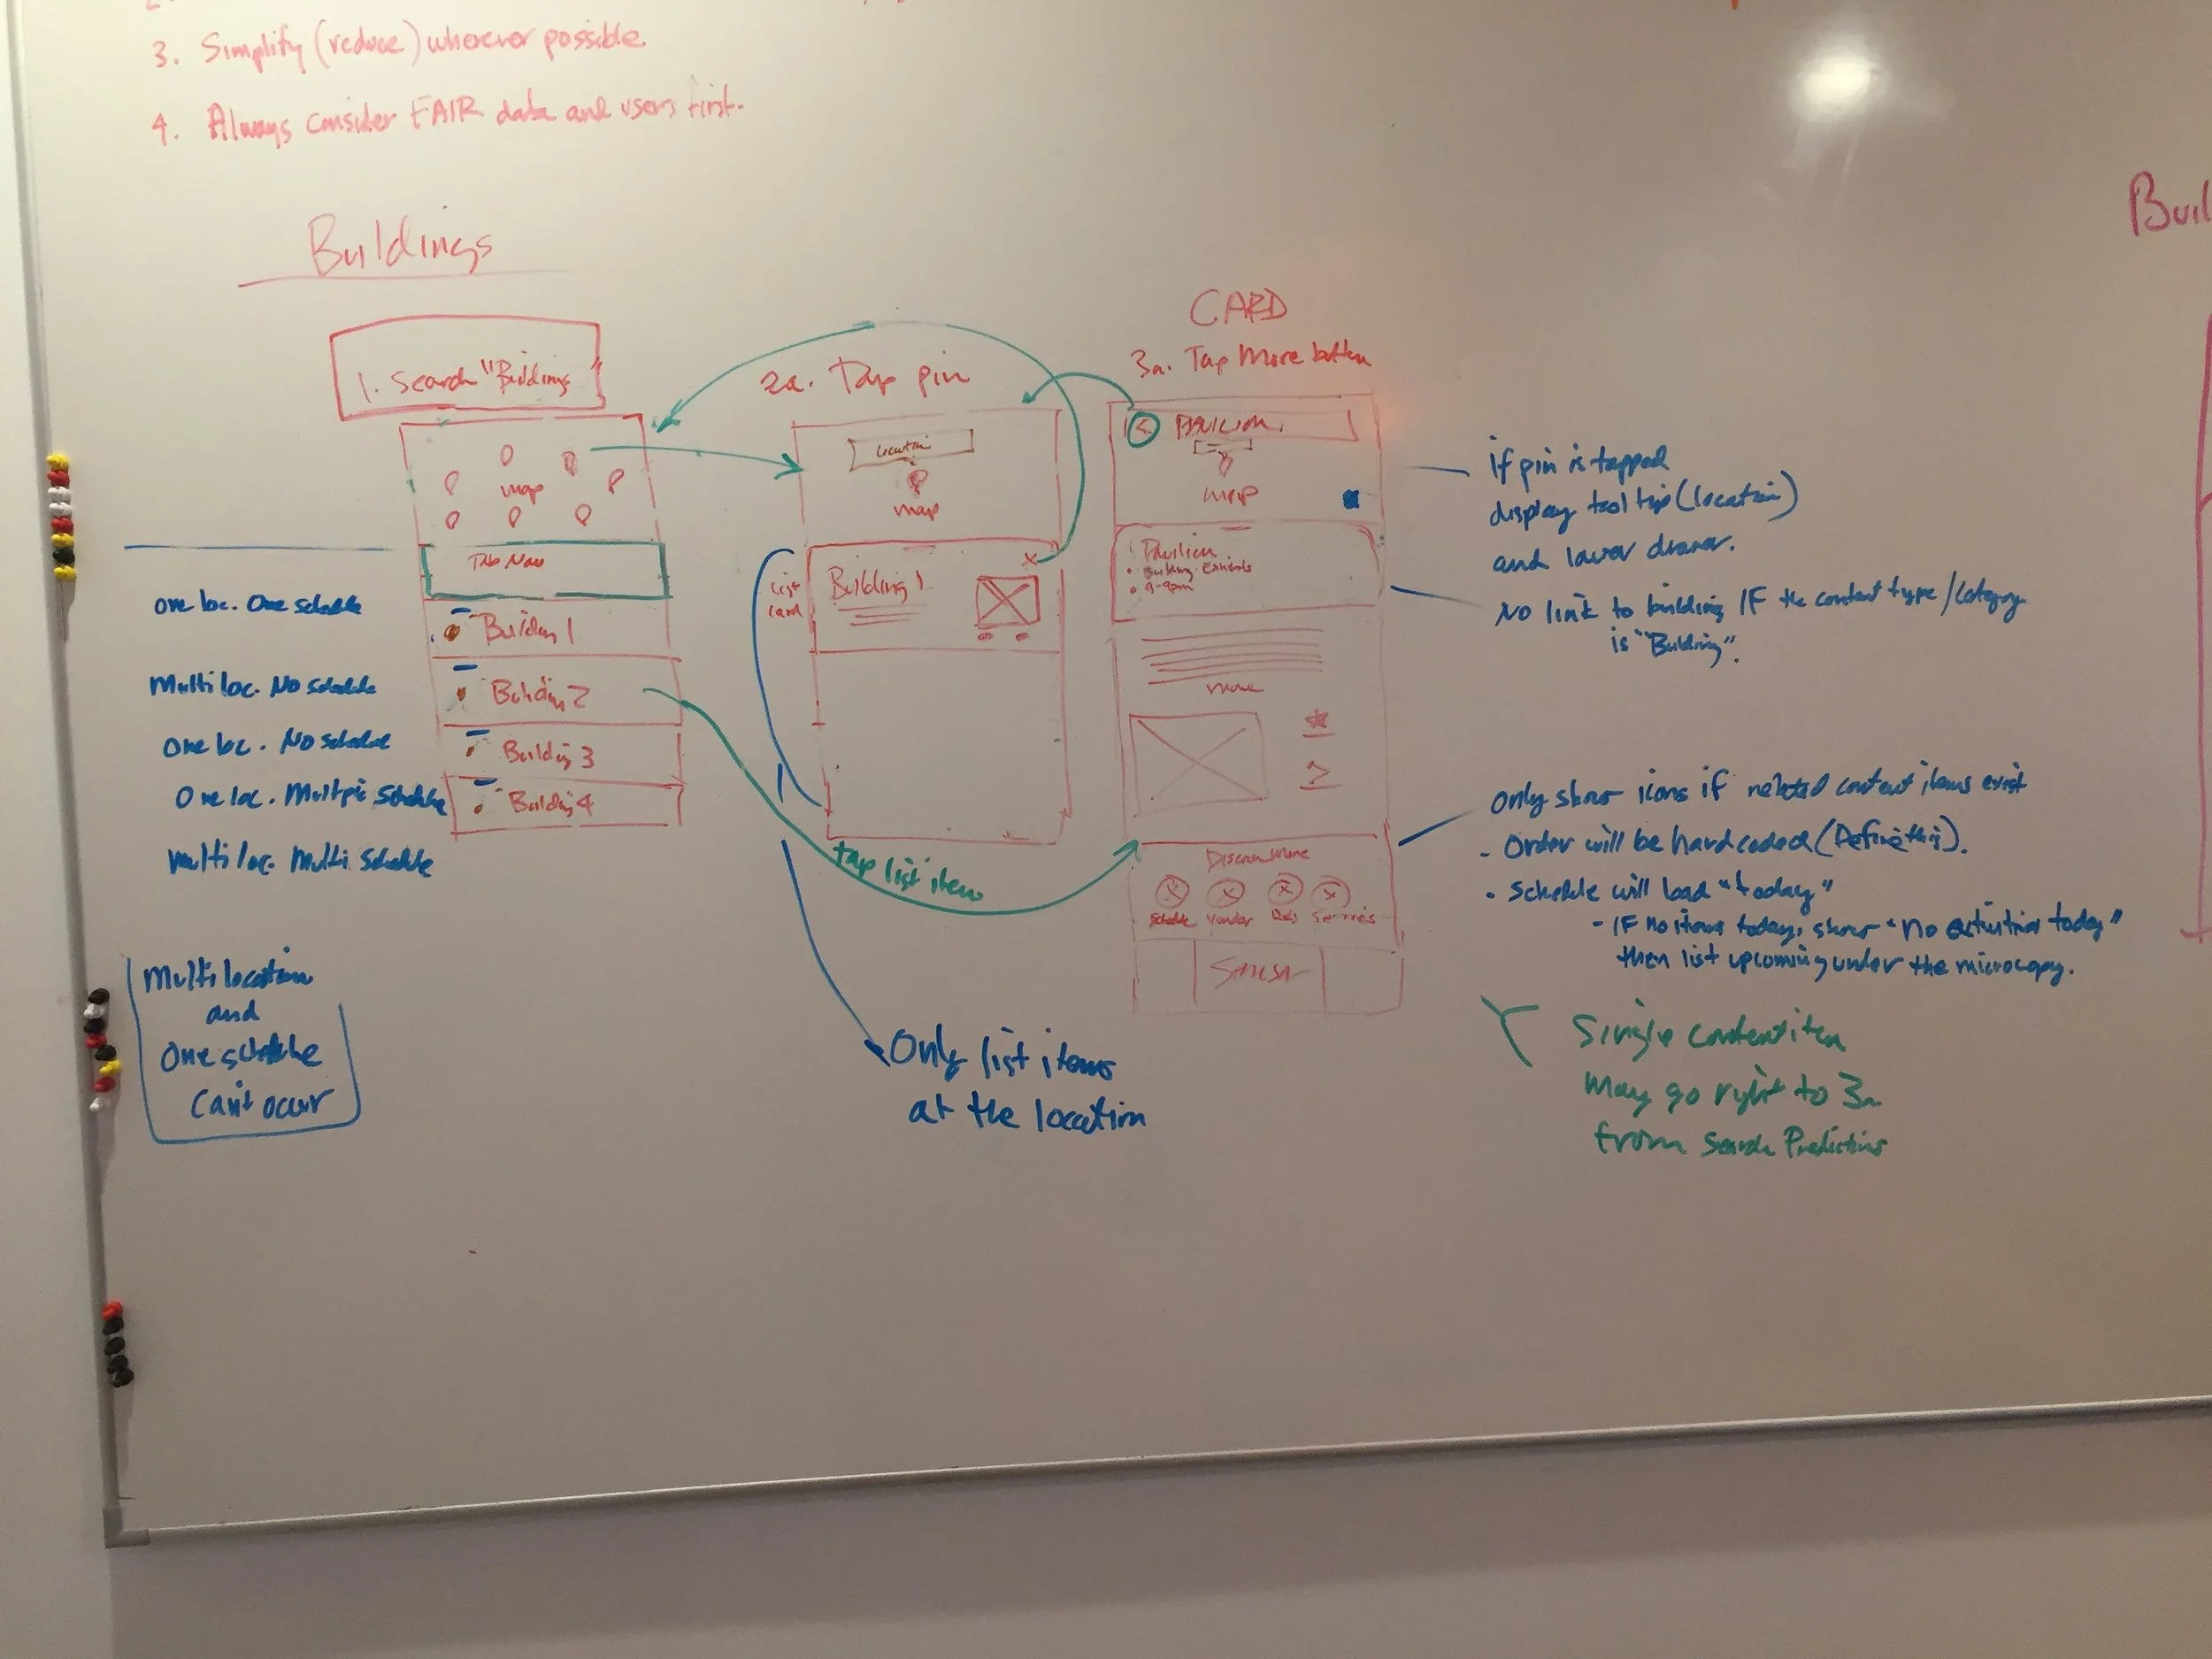 3. Simplify (reduce) wherever possible.
4. Always consider FAIR data and users first.
Buildings
1. Search "Buildings
map
Tab Nav
Building 1
Building 2
Building 3
Building 4
one loc. One schedule
Multi loc. No schedule
One loc. No schedule
One loc. Multiple schedule
Multi loc. Multi schedule
Multi location
and
One schedule
Can't occur
2a. Tap pin
Location
map
list
card
Building 1
X
tap list item
Only list items
at the location
CARD
3a. Tap More button
<
Pavilion
map
Pavilion
Building Exhibits
9-9pm
more
Discover More
Schedule Vendor Services
if pin is tapped
display tool tip (location)
and lower drawer.
No link to building IF the content type/category
is "Building".
Only show icons if related content items exist
- Order will be hardcoded (Define this).
- Schedule will load "today"
- IF no items today, show "no activities today"
then list upcoming under the microcopy.
Single content item
May go right to 3a
from Search Predictions
Buil